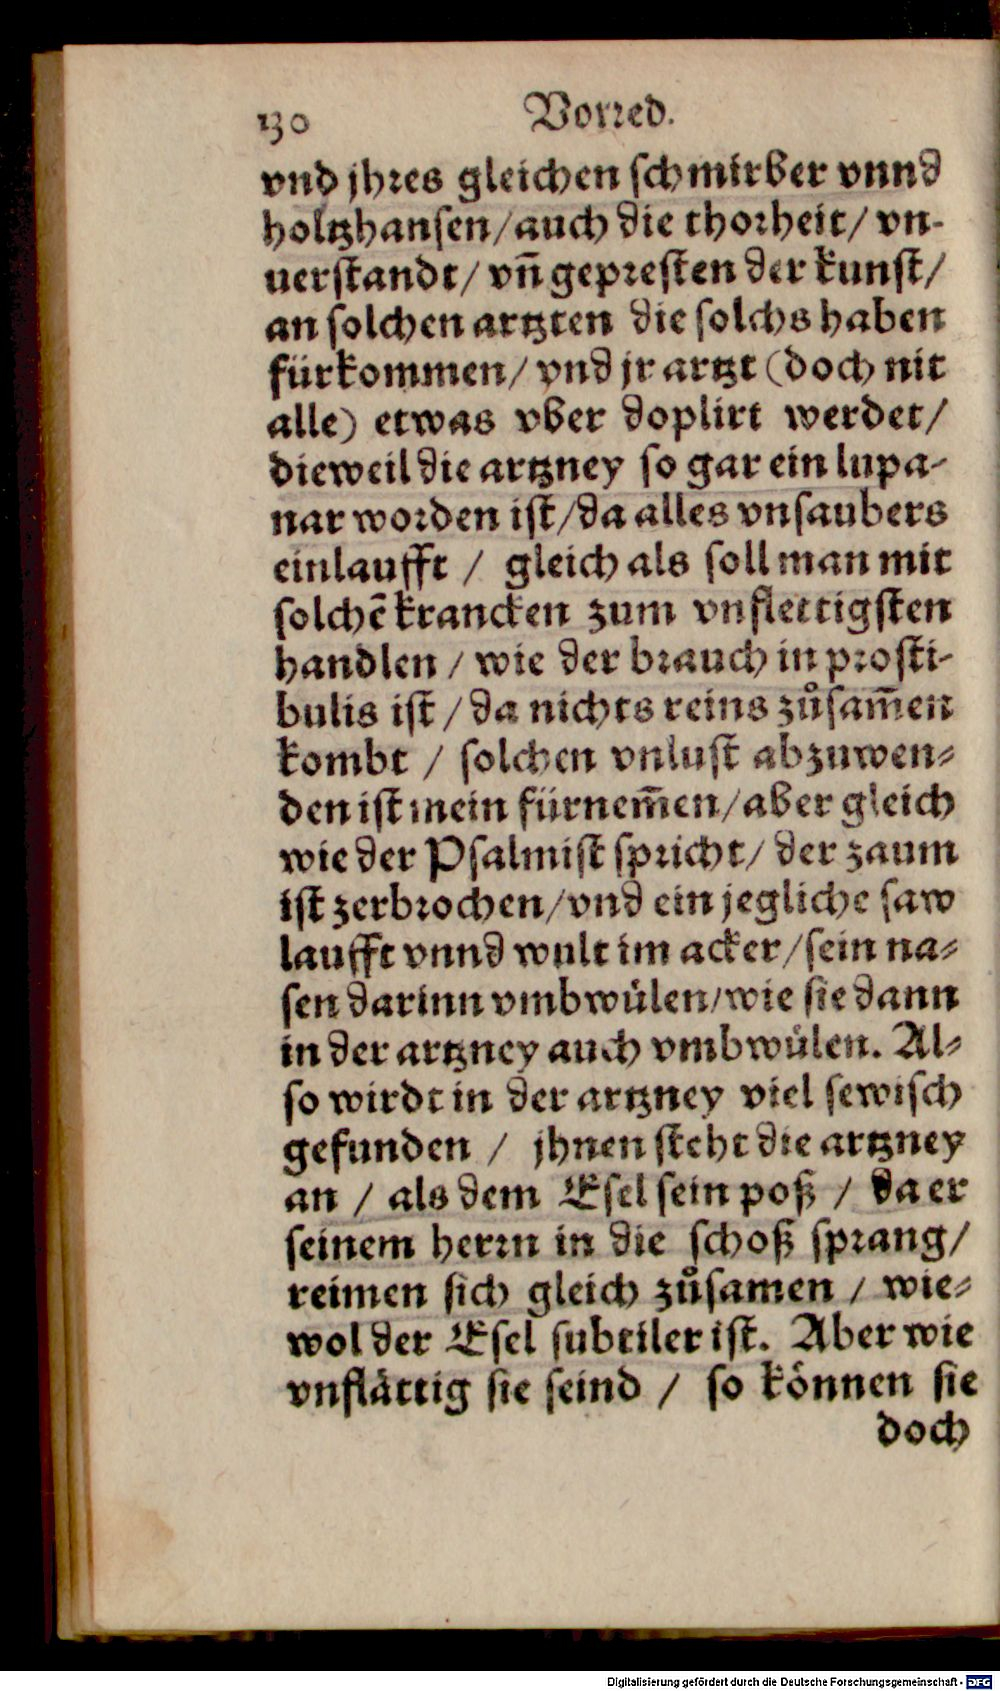 130 Vorred.
vnd jhres gleichen schmirber vnnd
holtzhansen/auch die thorheit/ vn-
uerstandt/ vn̄ gepresten der kunst/
an solchen artzten die solchs haben
fürkommen/ vnd jr artzt (doch nit
alle) etwas vber doplirt werdet/
dieweil die artzney so gar ein lupa-
nar worden ist/da alles vnsaubers
einlaufft / gleich als soll man mit
solchē krancken zum vnflettigsten
handlen / wie der brauch in prosti-
bulis ist / da nichts reins zůsam̄en
kombt / solchen vnlust abzuwen-
den ist mein fürnem̄en/aber gleich
wie der Psalmist spricht/ der zaum
ist zerbrochen/vnd ein jegliche saw
laufft vnnd wult im acker/sein na-
sen darinn vmbwůlen/wie sie dann
in der artzney auch vmbwůlen. Al-
so wirdt in der artzney viel sewisch
gefunden / jhnen steht die artzney
an / als dem Esel sein poß / da er
seinem herrn in die schoß sprang/
reimen sich gleich zůsamen / wie-
wol der Esel subtiler ist. Aber wie
vnfláttig sie seind / so können sie
doch
Digitalisierung gefördert durch die Deutsche Forschungsgemeinschaft - DFG